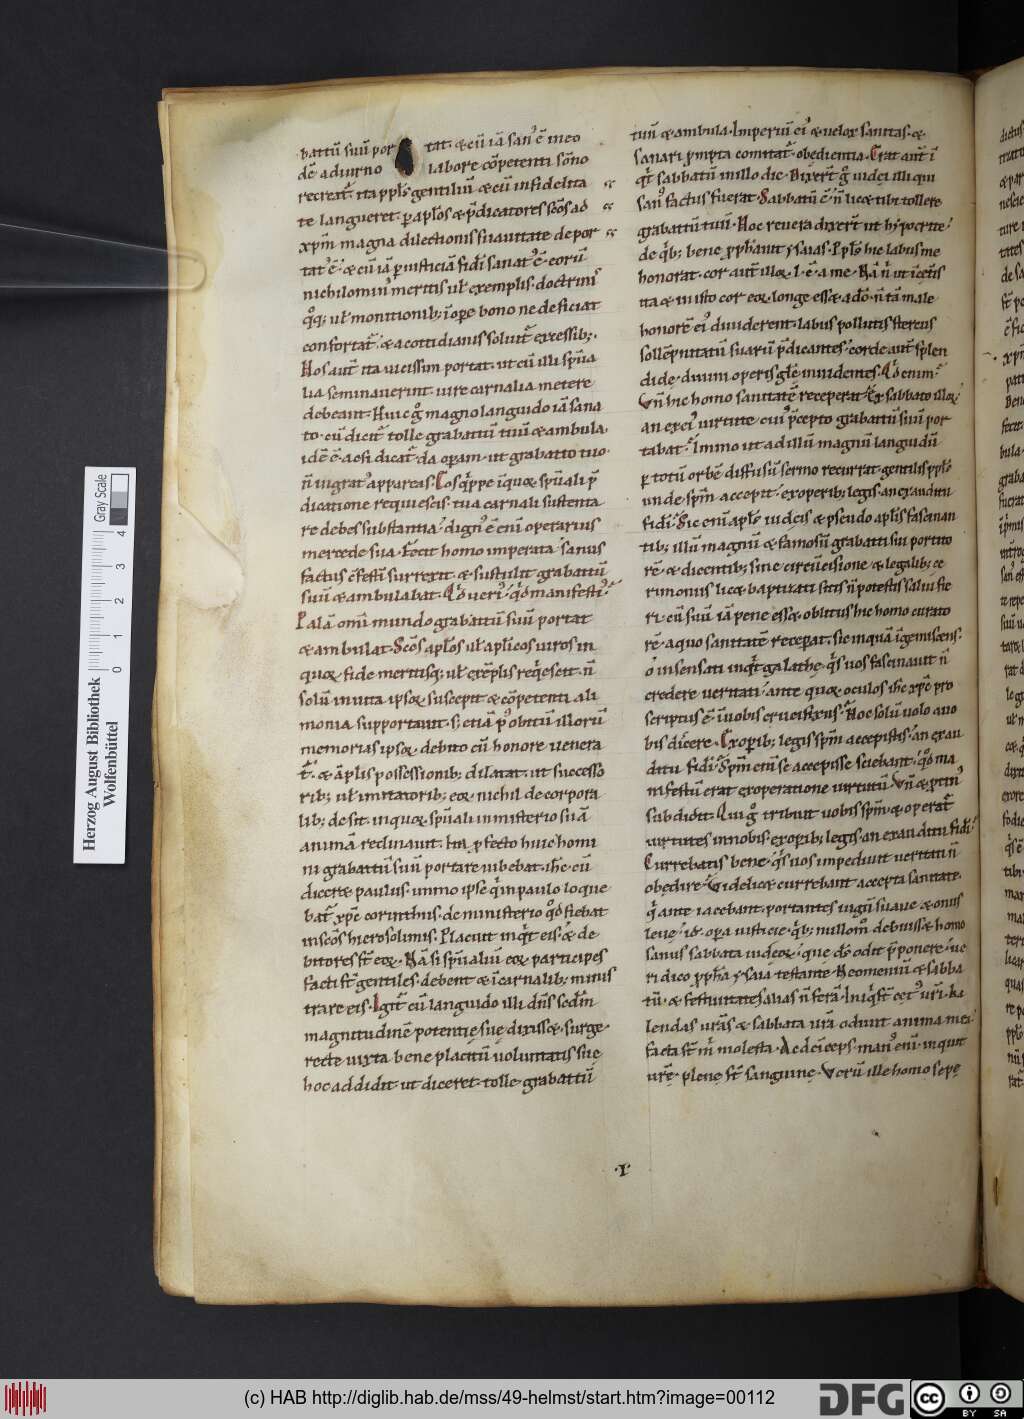 battū suū por tat. & cū iā san' ē in eo
dē a diurno labore cōpetenti sōno
recreat̄. ita ppl's gentiliū & cū infidelita
te langueret. p apl'os & p̄dicatores sc̄os ad
xpm̄ magna dilectionis suauitate depor
tat' ē. & cū iā p iusticiā fidī sanat' ē. eorū
nichilomin' meritis ul' exemplis. doctrinis
q̊q; ul' monitionib; ī ope bono ne deficiat
confortat̄. & a cottidianis soluit̄ excessib;.
Hos aut̄ ita uicissim portat. ut cū illi spūa
lia seminauerint. iure carnalia metere
debeant. Huic g̊ magno languido iā sana
to. cū dicit̄ tolle grabattū tuū & ambula.
idē ē. ac si dicat̄. da operam. ut grabatto tuo
n̄ ingrat' appareas. Eos q̄ppe ī quox spūali p̄
dicatione requiescis. tua carnali sustenta
re debes substantia. dign' ē enī operarius
mercede sua. Fecit homo imperata. sanus
factus ē. festī surrexit. & sustulit grabattū
suū & ambulabat. Qd̄ ueri'. qd̄ manifesti'.
Palā omī mundo grabattū suū portat
& ambulat. Sc̄os apl'os ul' apl'icos uiros in
quox fide meritisq; ul' exēplis req̄escit. n̄
solū in uita ipsox suscepit & cōpetenti ali
monia supportauit. s; etiā p' obitū illorū
memorias ipsox debito cū honore uenera
t̄. & āplis possessionib; dilatat. ut successo
rib; ul' imitatorib; eox nichil de corpora
lib; desit. in quox spūali ministerio suā
animā reclinauit. Ita pfecto huic homi
ni grabattū suū portare iubebat. ih̄c. cū
dicere paulus. immo ipse q̄ in paulo loque
bat̄ xpc̄ corinthiis. de ministerio qd̄ fiebat
in sc̄os hierosolimis. Placuit inq̄t eis. & de
bitores st̄ eox. Nā si spūaliū eox participes
facti st̄ gentiles. debent & ī carnalib; minis
trare eis. Igit̄ cū languido illi dn̄s sedm̄
magnitudinē potentię suę dixisset. surge.
recte iuxta bene placitū uoluntatis suę
hoc addidit ut diceret. tolle grabattū
tuū & ambula. Imperiū ei' & uelox sanitas. &
sanari prompta comitat̄ obedientia. Erat aut̄ ī
q̄t sabbatū in illo die. Dixert̄ g̊ iudei illi qui
san' factus fuerat. Sabbatū ē. n̄ licet tibi tollere
grabattū tuū. Hoc reuera dixert̄ ut hypocrite.
de q̄b; bene pph̄auit ysaias. Ppl's hic labiis me
honorat. cor aut̄ illox l. ē. a me. Nā n̄ ut īcert̄is
ita & in isto cor eox longe esset a dō. n̄ tā male
honorē ei' diuiderent. labiis pollutis stercus
sollēpnitatū suarū p̄dicantes. corde aut̄ splen
didę diuini operis gl'ę inuidentes. Qd̄ enim.
Vn̄ hic homo sanitatē receperat. Ex sabbato illox.
an ex ei' uirtute cui' p̄cepto grabattū suū por
tabat. Immo ut ad illū magnū languidū
p totū orbē diffusū sermo recurrat. gentilis ppl's
unde spm̄ accepit. ex operib; legis. an ex auditu
fidī. Sic enī apl's iudeis & pseudo apl'is fascinan
tib; illū magnū & famosū grabatti sui portito
rē. & dicentib; sine circūcisione & legalib; ce
rimoniis licet baptizati sitis n̄ potestis salui fie
ri. cū suū iā pene esset oblitus hic homo curato
rē. a quo sanitatē receperat. sic inquā īgemiscens.
O insensati inq̄t galathę. q̄s uos fascinauit n̄
credere ueritati. ante quox oculos ih̄c xpc̄ pro
scriptus ē. ī uobis crucifixus. Hoc solū uolo a uo
bis dicere. Ex operib; legis spm̄ accepistis. an ex au
ditu fidī. Spm̄ enī se accepisse sciebant. qd̄ ma
nifestū erat ex operatione uirtutū. Vn̄ & ptin'
subdidit. Qui g̊ tribuit uobis spm̄ & operat̄
uirtutes in uobis. ex opib; legis. an ex auditu fidī.
Currebatis bene. q̄s uos impediuit ueritati n̄
obedire. Videlicet currebant accepta sanitate.
q̄ ante iacebant. portantes iugū suaue & onus
leue. id. opera iusticie. q̄b; nullom̄ debuisset homo
sanus sabbata iudeox. que d's odit p̄ponere. ue
ri dico ppha ysaia testante. Neomeniū & sabba
tū. & festiuitates alias n̄ ferā. Iniq̄ st̄ cęt' ur̄i. ka
lendas ur̄as & sabbata ur̄a odiuit anima mea.
facta st̄ m̄ molesta. Ac deīceps. man' enī inquit
ur̄ę plenę st̄ sanguine. Verū ille homo sepe
·I·
Herzog August Bibliothek
Wolfenbüttel
0 1 2 3 4
Gray Scale
(c) HAB http://diglib.hab.de/mss/49-helmst/start.htm?image=00112
DFG
cc BY SA